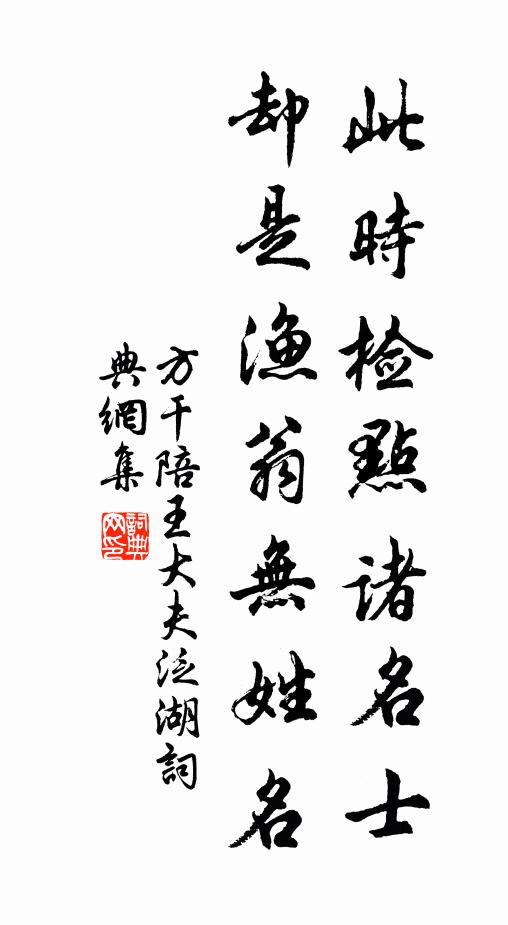 此時检點諸名士
却是漁翁無姓名
方干陪王大夫泛湖詞
典網集
詞典网印